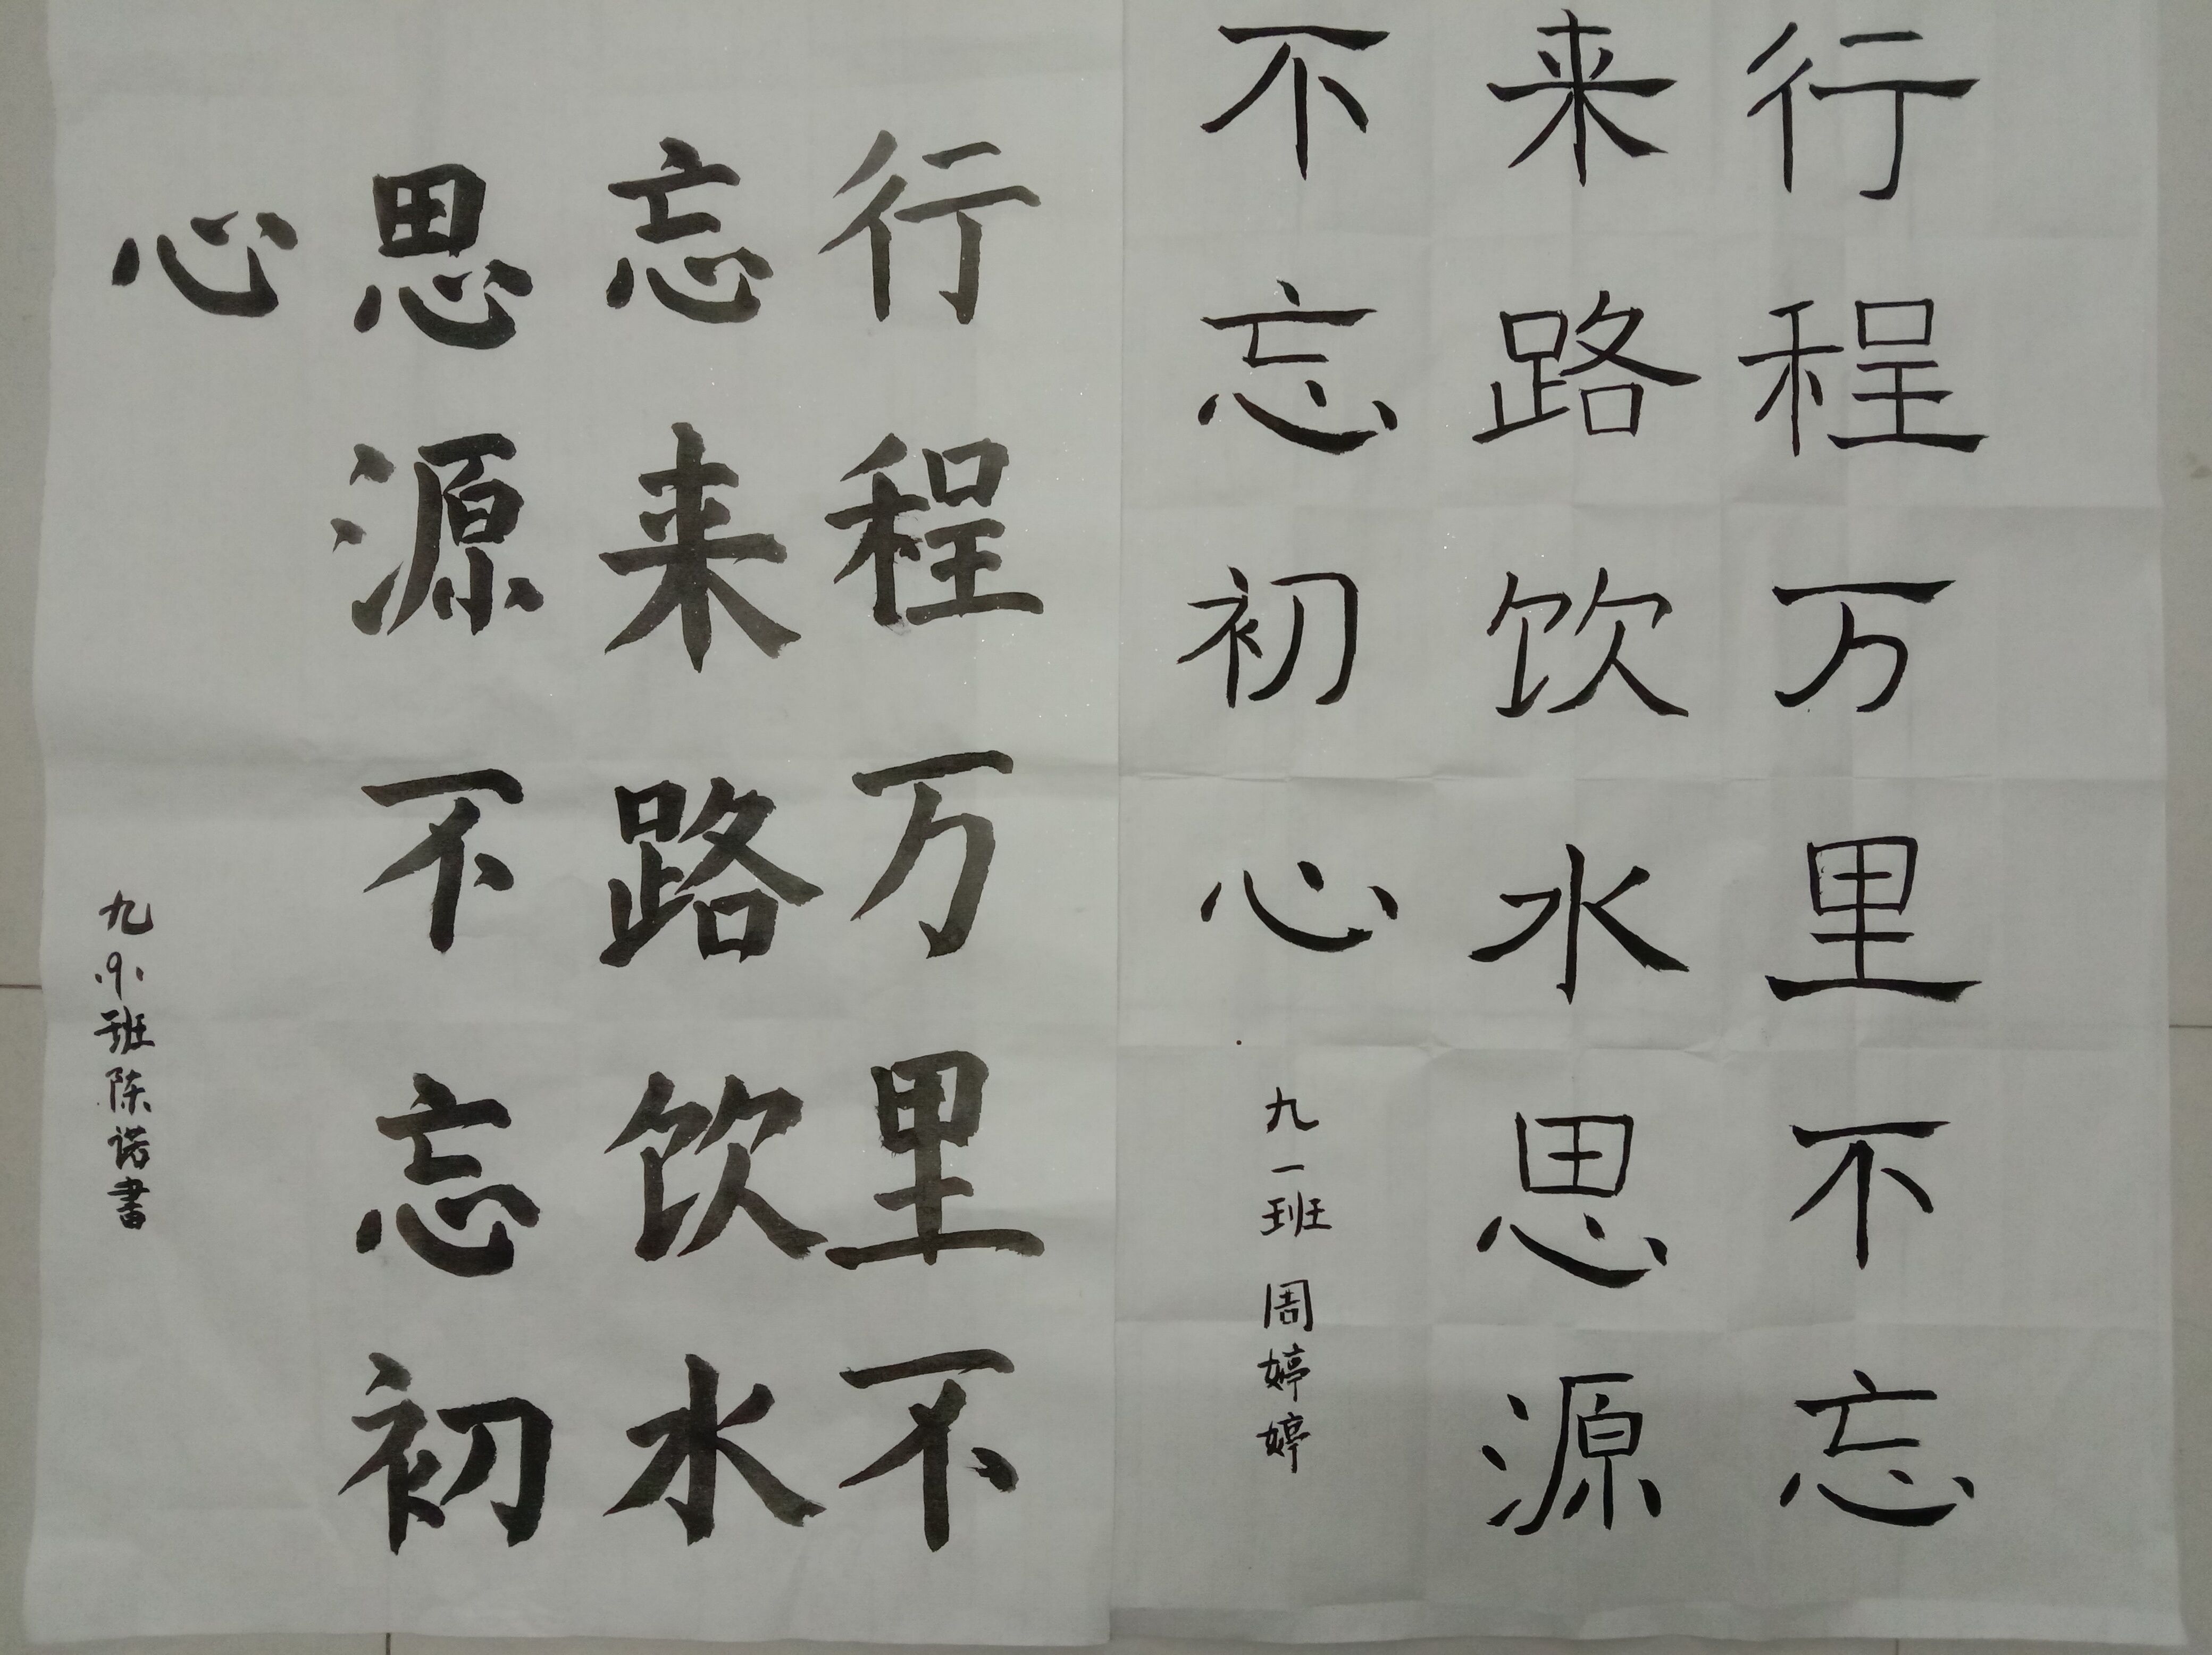 行程万里不忘
来路饮水思源
不忘初心
九一班 周婷婷
行程万里不
忘来路饮水
思源不忘初
心
九小班陈诺書